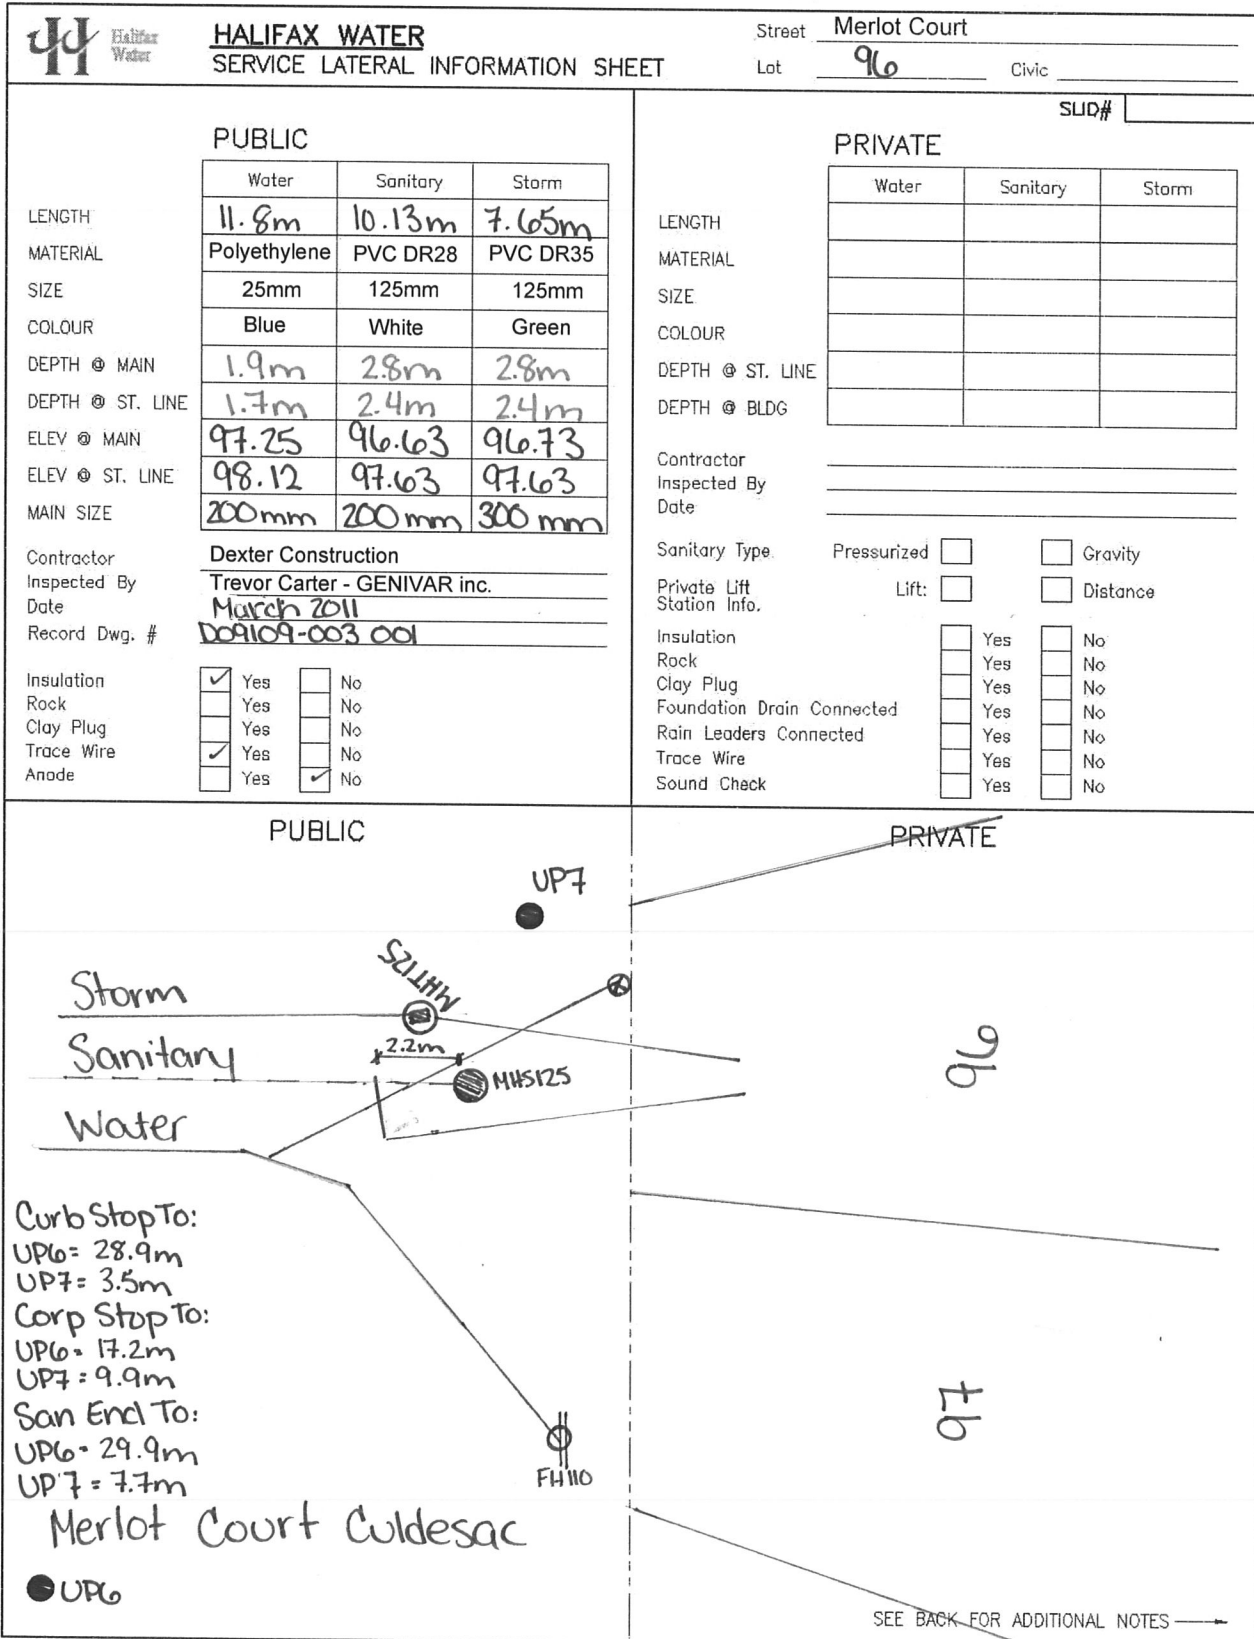 Halifax
Water
HALIFAX WATER
SERVICE LATERAL INFORMATION SHEET
Street Merlot Court
Lot 96 Civic
SLID#
PUBLIC
Water Sanitary Storm
LENGTH 11.8m 10.13m 7.65m
MATERIAL Polyethylene PVC DR28 PVC DR35
SIZE 25mm 125mm 125mm
COLOUR Blue White Green
DEPTH @ MAIN 1.9m 2.8m 2.8m
DEPTH @ ST. LINE 1.7m 2.4m 2.4m
ELEV @ MAIN 97.25 96.63 96.73
ELEV @ ST. LINE 98.12 97.63 97.63
MAIN SIZE 200mm 200mm 300mm
Contractor Dexter Construction
Inspected By Trevor Carter - GENIVAR inc.
Date March 2011
Record Dwg. # D09109-003 001
Insulation ✓ Yes No
Rock Yes No
Clay Plug Yes No
Trace Wire ✓ Yes No
Anode Yes ✓ No
PRIVATE
Water Sanitary Storm
LENGTH
MATERIAL
SIZE
COLOUR
DEPTH @ ST. LINE
DEPTH @ BLDG
Contractor
Inspected By
Date
Sanitary Type Pressurized Gravity
Private Lift Lift: Distance
Station Info.
Insulation Yes No
Rock Yes No
Clay Plug Yes No
Foundation Drain Connected Yes No
Rain Leaders Connected Yes No
Trace Wire Yes No
Sound Check Yes No
PUBLIC
PRIVATE
UP7
MHT125
Storm
2.2m
Sanitary
MHS125
Water
96
Curb Stop To:
UP6= 28.9m
UP7= 3.5m
Corp Stop To:
UP6= 17.2m
UP7= 9.9m
San End To:
UP6= 29.9m
UP7= 7.7m
97
FH110
Merlot Court Culdesac
UP6
SEE BACK FOR ADDITIONAL NOTES